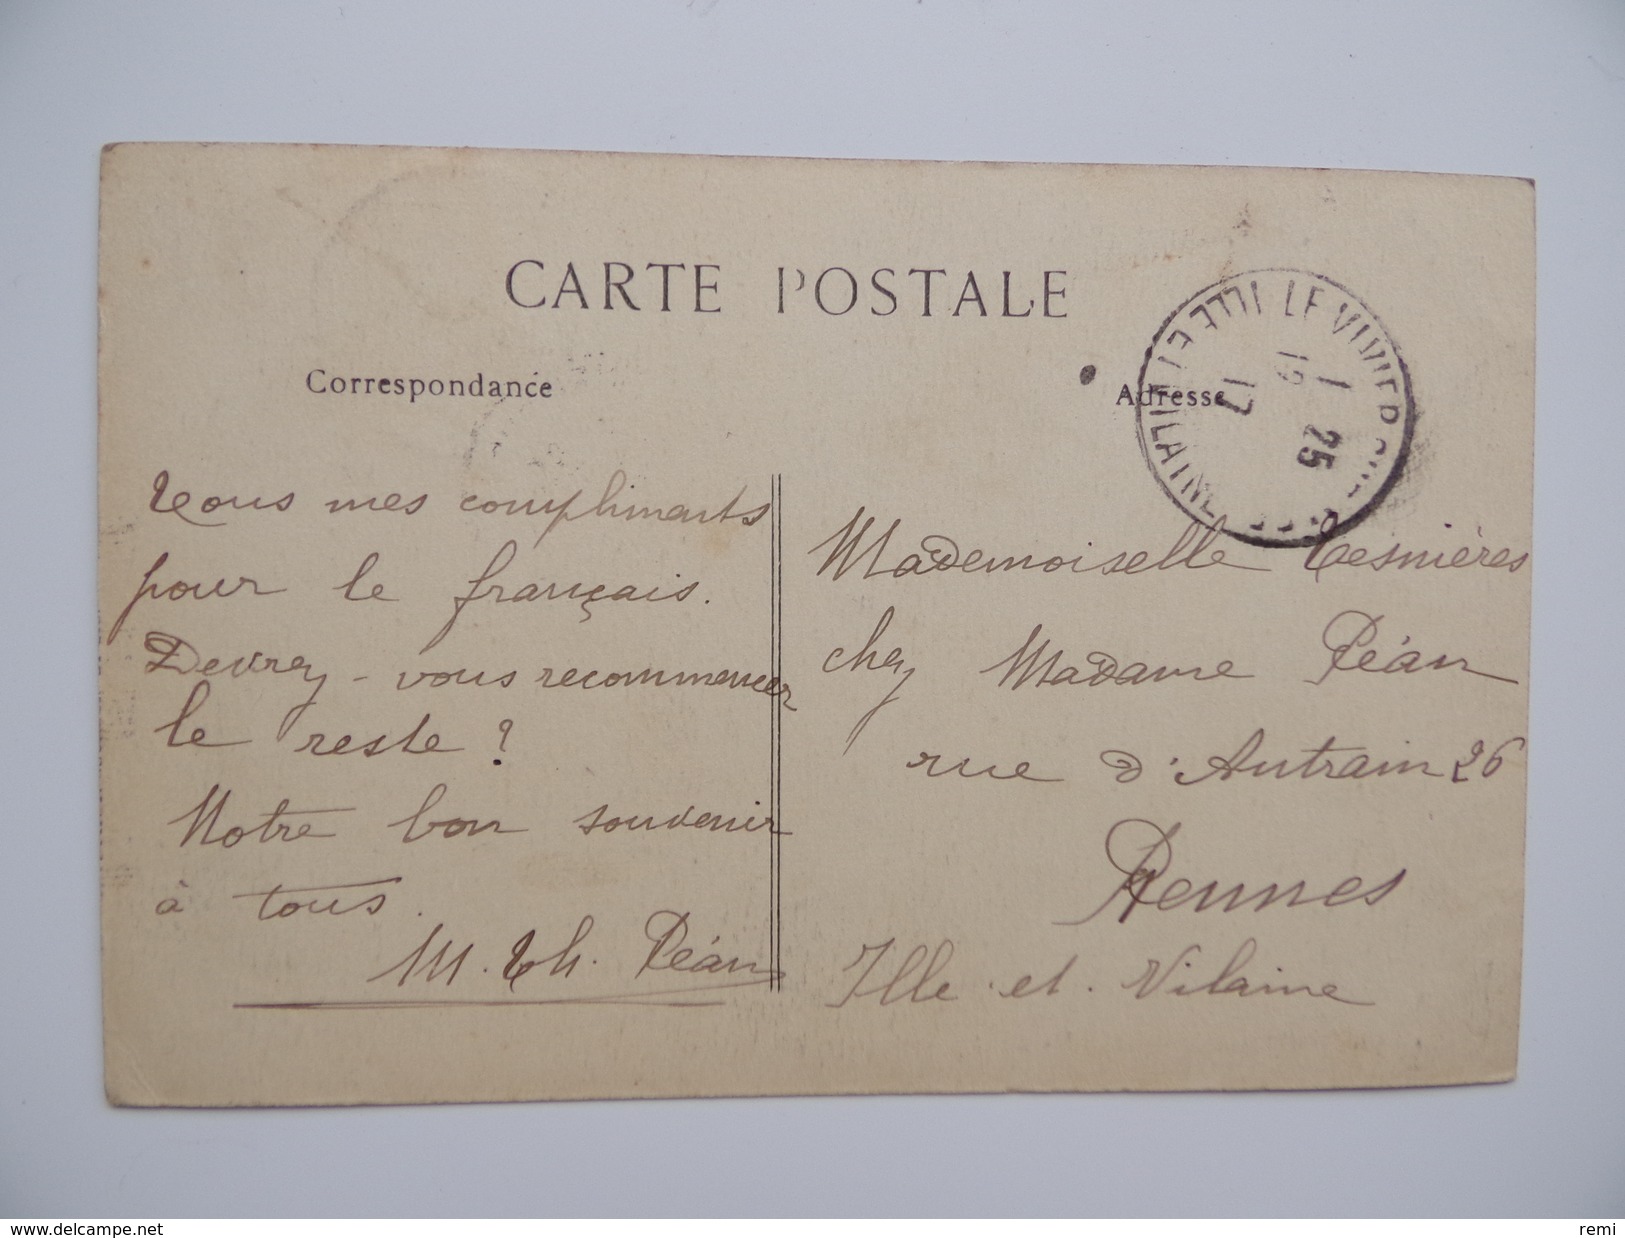 CARTE POSTALE
Correspondance
Adresse
LE VIVIER
ILLE ET VILAINE
12
17
1
25
Tous mes compliments
pour le français.
Devrez-vous recommencer
le reste ?
Notre bon souvenir
à tous.
M. Th. Péan
Mademoiselle Tesnières
chez Madame Péan
rue d'Antrain 26
Rennes
Ille-et-Vilaine
www.delcampe.net
remi